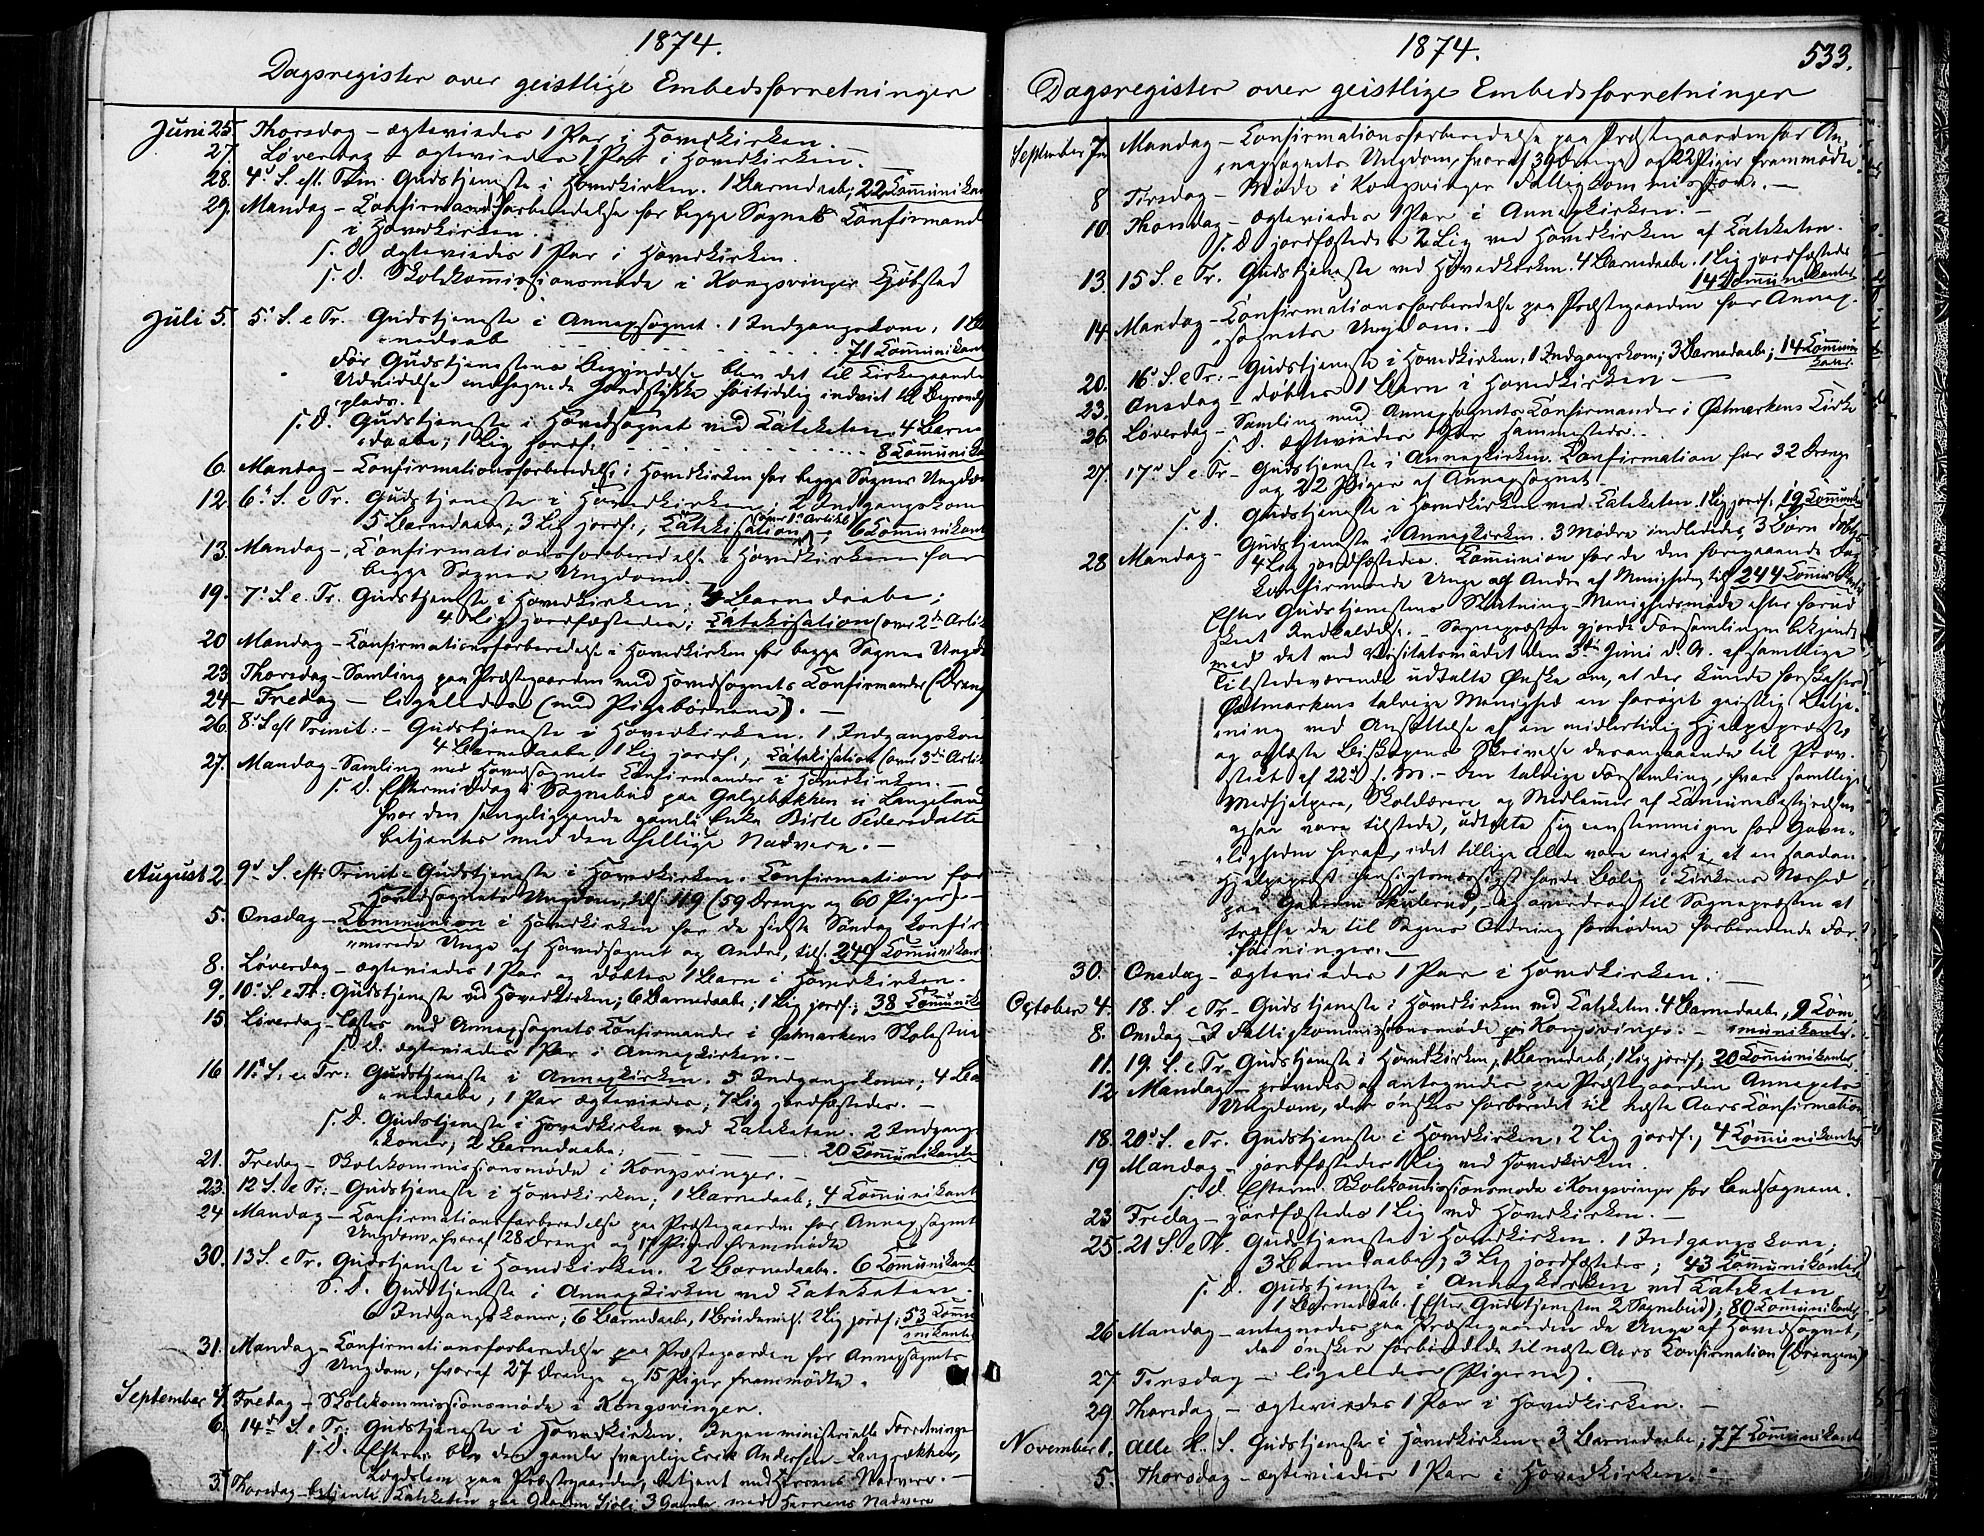 1874.
Dagsregister over geistlige Embedsforretninger
Juni 25. Thorsdag – ægteviedes 1 Par i Hovedkirken.
27. Løverdag – ægteviedes 1 Par i Hovedkirken. –
28. 4de S. eft. Trin. Gudstjeneste i Hovedkirken. 1 Barnedaab; 22 Communikan
29. Mandag – Confirmandforberedelse for begge Sognes Confirmand
i Hovedkirken.
s. D. ægteviedes 1 Par i Hovedkirken.
s. D. Skolekommissionsmøde i Kongsvinger Kjøbsted
Juli 5. 5te S. e Tr. Gudstjeneste i Annexsognet. 1 Indgangskone, 1 Ba
nedaab 71 Communikant
Før Gudstjenestens Begyndelse blev det til Kirkegaardens
Udvidelse indhegnede Jordstykke høitidelig indviet til Begravels
plads.
s. D. Gudstjeneste i Hovedsognet ved Catecheten. 4 Barne
daabe; 1 Lig jordf. 8 Communika
6. Mandag – Confirmationsforberedelse i Hovedkirken for begge Sognes Ungdom
12. 6te S. e Tr. Gudstjeneste i Hovedkirken, 2 Indgangskone
5 Barnedaabe; 3 Lig jordf.; Catekisation (over 1ste Artikel); 6 Communikant
13. Mandag – Confirmationsforberedelse i Hovedkirken for
begge Sognes Ungdom.
19. 7de S. e. Tr. Gudstjeneste i Hovedkirken; 4 Barnedaabe;
4 Lig jordfæstedes; Catekisation (over 2den Artik
20 Mandag – Confirmationsforberedelse i Hovedkirken for begge Sognes Ungd
23 Thorsdag – Samling paa Præstegaarden med Hovedsognets Confirmander (Dreng
24 – Fredag – ligeledes (med Pigebørnene). –
26. 8de S eft Trinit: – Gudstjeneste i Hovedkirken. 1 Indgangskon
4 Barnedaabe, 1 Lig jordf.; Catekisation (over 3die Artik
27. Mandag – Samling med Hovedsognets Confirmander i Hovedkirken. –
s. D. Eftermiddag i Sognebud paa Galgebakken i Langeland
hvor den sengeliggende gamle Enke Birte Pedersdatter
betjentes med den hellige Nadvere. –
August 2. 9de S. eft. Trinit – Gudstjeneste i Hovedkirken. Confirmation for
Hovedsognets Ungdom, tils. 119 (59 Drenge og 60 Piger). –
5. Onsdag – Communion i Hovedkirken for de sidste Søndag confir
merede Unge af Hovedsognet og Andre, tils. 240 Communikant
8. Løverdag – ægteviedes 1 Par og døbtes 1 Barn i Hovedkirken. –
9. 10de S. e Tr: Gudstjeneste ved Hovedkirken; 6 Barnedaabe; 1 Lig jordf.; 38 Communik
15. Løverdag – læstes med Annexsognets Confirmander i Østmarkens Skolestue
s. D. ægteviedes 1 Par i Annexkirken. –
16 11te S. e Tr: Gudstjeneste i Annexkirken. 5 Indgangskoner; 4 Ba
nedaabe, 1 Par ægteviedes; 7 Lig jordfæstedes. –
s. D. Gudstjeneste i Hovedkirken ved Catecheten. 2 Indgangs
koner; 2 Barnedaabe; 20 Communikanter
21. Fredag – Skolekommissionsmøde i Kongsvinger. –
23. 12 S. e Tr: – Gudstjeneste i Hovedkirken; 1 Barnedaab; 4 Communikant
24 Mandag – Confirmationsforberedelse paa Præstegaarden for Annexsognets
Ungdom, hvoraf 28 Drenge og 17 Piger fremmødte
30. 13 S. e Tr. Gudstjeneste i Hovedkirken. 2 Barnedaabe. 6 Communikant
s. D. Gudstjeneste i Annexkirken ved Catecheten.
6 Indgangskoner; 6 Barnedaabe, 1 Brudeviels. 2 Lig jordf.; 53 Commu
nikanter
31. Mandag – Confirmationsforberedelse paa Præstegaarden for Annexsognets
Ungdom, hvoraf 27 Drenge og 15 Piger fremmødte.
September 4. Fredag – Skolekommissionsmøde i Kongsvinger.
6. 14de S. e Tr: Gudstjeneste i Hovedkirken. Ingen ministerielle Forretninge
s. D. Efterm. blev den gamle svagelige Erik Andersen – Langrækken,
Lægdslem paa Præstegaarden, betjent med Herrens Nadvere. –
3. Thorsdag – betjente Catecheten paa Gaarden Sjøli 3 Gamle med Herrens Nadvere
1874. 533.
Dagsregister over geistlige Embedsforretninger
September 7de Mandag – Confirmationsforberedelse paa Præstegaarden for An
nexsognets Ungdom, hvoraf 30 Drenge og 22 Piger fremmødte
8 Tirsdag – Møde i Kongsvinger Fattigkommission. –
10. Thorsdag – ægteviedes 1 Par i Annexkirken. –
s. D. jordfæstedes 2 Lig ved Hovedkirken af Catecheten.
13. 15 S. e Tr. Gudstjeneste ved Hovedkirken. 4 Barnedaabe. 1 Lig jordfæstede
14 Communikanter
14. Mandag – Confirmationsforberedelse paa Præstegaarden for Annex
sognets Ungdom. –
20. 16de S. e Tr. – Gudstjeneste i Hovedkirken; 1 Indgangskone; 3 Barnedaabe; 14 Communi
kanter.
23. Onsdag – døbtes 1 Barn i Hovedkirken –
26. Løverdag – Samling med Annexsognets Confirmander i Østmarkens Kirke
s. D. ægteviedes 1 Par sammesteds. –
27. 17de S e. Tr – Gudstjeneste i Annexkirken. Confirmation for 32 Drenge
og 22 Piger af Annexsognet –
s. D. Gudstjeneste i Hovedkirken ved Catecheten. 1 Lig jordf. 19 Communi
28 Mandag – Gudstjeneste i Annexkirken. 3 Mødre indlededes, 3 Børn døbtes
4 Lig jordfæstedes. Communion for de den foregaaende Dag
konfirmerede Unge og Andre af Menigheden, tils. 244 Communikanter
Efter Gudstjenestens Slutning – Menighedsmøde efter forud
skeet Indkaldelse. – Sognepræsten gjorde Forsamlingen bekjendt
med det ved Visitatsmødet den 3die Juni d. A. af samtlige
Tilstedeværende udtalte Ønske om, at der kunde forskaffes
Østmarkens talrige Menighed en forøget geistlig Betje
ning ved Ansættelse af en midlertidig Hjelpepræst,
og oplæste Biskopens Skrivelse derangaaende til Prov
stiet af 22de s. M. – Den talrige Forsamling, hvor samtlige
Medhjelpere, Skolelærere og Medlemer af Communebestyrelsen
ogsaa vare tilstede, udtalte sig eenstemmigen for Gavn
ligheden heraf, idet tillige Alle vare enige i, at en saadan
Hjelpepræst hensigtsmæssigst havde Bolig i Kirkens Nærhed
paa Gaarden Skulerud, – og overdrog til Sognepræsten at
træffe de til Sagens Ordning fornødne forberedende For
føininger. –
30. Onsdag – ægteviedes 1 Par i Hovedkirken. –
October 4. 18. S. e Tr – Gudstjeneste i Hovedkirken ved Catecheten. 4 Barnedaabe, 9 Com
munikanter.
8. Onsdag – I Fattigkommissionsmøde i Kongsvinger. –
11. 19. S. e Tr. Gudstjeneste i Hovedkirken; 1 Barnedaab; 1 Lig jordf; 20 Communikanter
12 Mandag – prøvedes og antegnedes paa Præstegaarden Annexets
Ungdom, der ønskes forberedet til næste Aars Confirmation
18. 20de S. e Tr. Gudstjeneste i Hovedkirken. 2 Lig jordf.; 4 Communikanter
19 Mandag – jordfæstedes 1 Lig ved Hovedkirken.
s. D. Efterm. Skolekommissionsmøde i Kongsvinger for Landsognene.
23 Fredag – jordfæstedes 1 Lig ved Hovedkirken. –
25. 21 S. e Tr. Gudstjeneste i Hovedkirken. 1 Indgangskone;
3 Barnedaabe; 3 Lig jordfæstedes; 43 Communikanter
s. D. Gudstjeneste i Annexkirken ved Catecheten
1 Barnedaab. (Efter Gudstjenesten 2 Sognebud); 80 Communikanter
26 Mandag – antegnedes paa Præstegaarden de Unge af Hovedsognet,
der ønskes forberedede til næste Aars Confirmation (Drengene)
27 Tirsdag – ligeledes (Pigerne). –
29 Thorsdag – ægteviedes 1 Par i Hovedkirken. –
November 1. Alle H. S. Gudstjeneste i Hovedkirken – 3 Barnedaabe; 77 Communikanter
5. Thorsdag – ægteviedes 1 Par i Hovedkirken. –